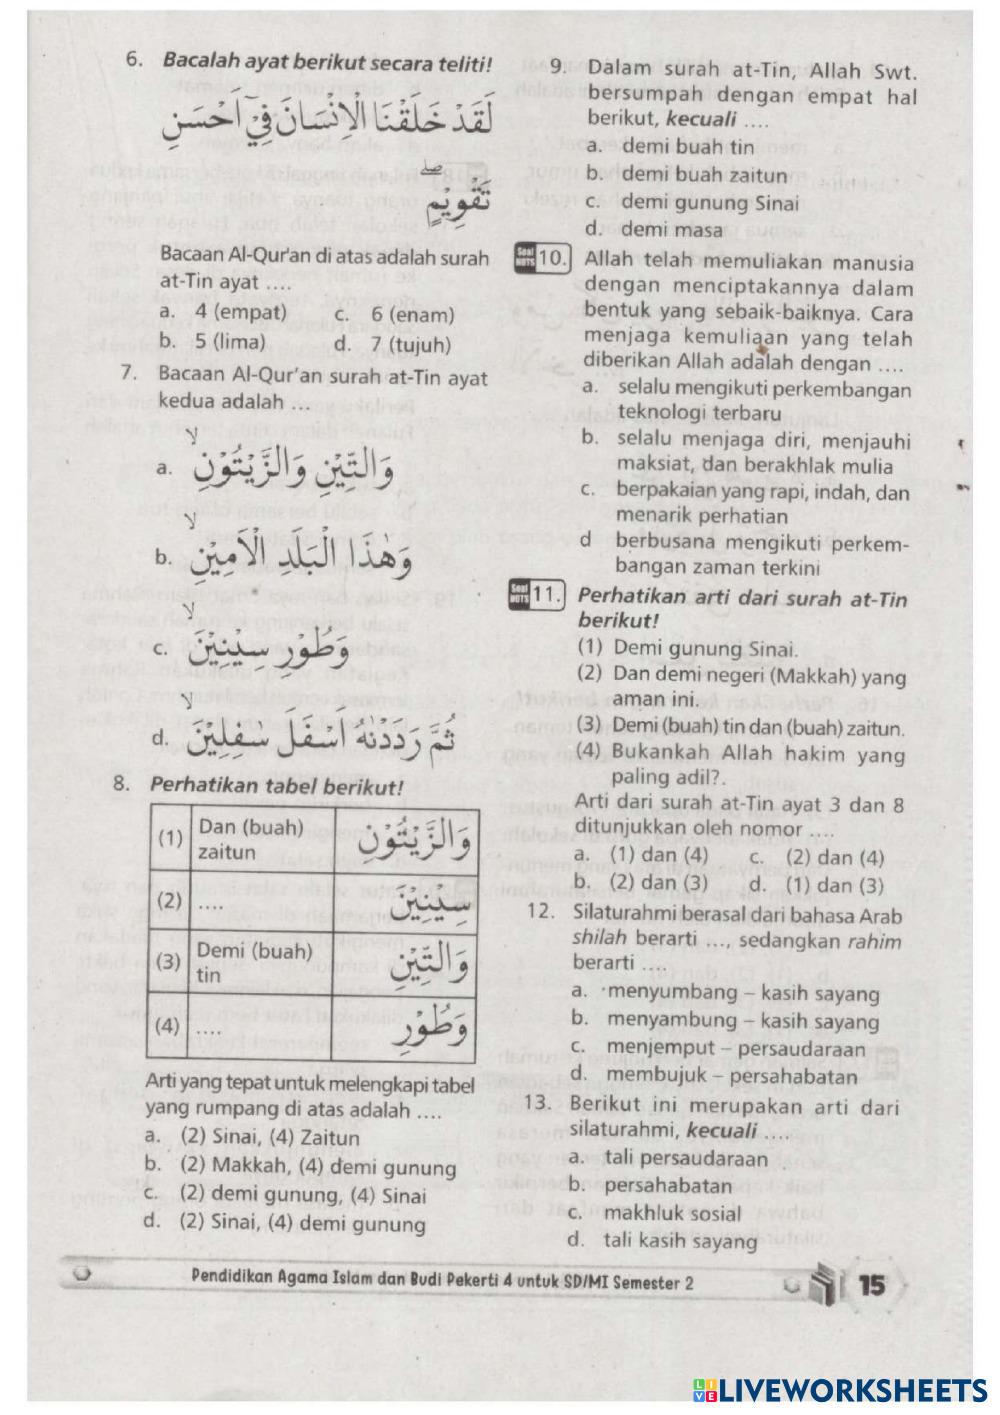 6. Bacalah ayat berikut secara teliti!
لَقَدْ خَلَقْنَا الْاِنْسَانَ فِيْٓ اَحْسَنِ
تَقْوِيْمٍۖ
Bacaan Al-Qur'an di atas adalah surah
at-Tin ayat ....
a. 4 (empat) c. 6 (enam)
b. 5 (lima) d. 7 (tujuh)
7. Bacaan Al-Qur'an surah at-Tin ayat
kedua adalah ...
a. وَالتِّيْنِ وَالزَّيْتُوْنِۙ
b. وَهٰذَا الْبَلَدِ الْاَمِيْنِۙ
c. وَطُوْرِ سِيْنِيْنَۙ
d. ثُمَّ رَدَدْنٰهُ اَسْفَلَ سٰفِلِيْنَۙ
8. Perhatikan tabel berikut!
(1) Dan (buah) وَالزَّيْتُوْنِ
zaitun
(2) .... سِيْنِيْنَ
(3) Demi (buah) وَالتِّيْنِ
tin
(4) .... وَطُوْرِ
Arti yang tepat untuk melengkapi tabel
yang rumpang di atas adalah ....
a. (2) Sinai, (4) Zaitun
b. (2) Makkah, (4) demi gunung
c. (2) demi gunung, (4) Sinai
d. (2) Sinai, (4) demi gunung
9. Dalam surah at-Tin, Allah Swt.
bersumpah dengan empat hal
berikut, kecuali ....
a. demi buah tin
b. demi buah zaitun
c. demi gunung Sinai
d. demi masa
Soal HOTS 10. Allah telah memuliakan manusia
dengan menciptakannya dalam
bentuk yang sebaik-baiknya. Cara
menjaga kemuliaan yang telah
diberikan Allah adalah dengan ....
a. selalu mengikuti perkembangan
teknologi terbaru
b. selalu menjaga diri, menjauhi
maksiat, dan berakhlak mulia
c. berpakaian yang rapi, indah, dan
menarik perhatian
d berbusana mengikuti perkem-
bangan zaman terkini
Soal HOTS 11. Perhatikan arti dari surah at-Tin
berikut!
(1) Demi gunung Sinai.
(2) Dan demi negeri (Makkah) yang
aman ini.
(3) Demi (buah) tin dan (buah) zaitun.
(4) Bukankah Allah hakim yang
paling adil?.
Arti dari surah at-Tin ayat 3 dan 8
ditunjukkan oleh nomor ....
a. (1) dan (4) c. (2) dan (4)
b. (2) dan (3) d. (1) dan (3)
12. Silaturahmi berasal dari bahasa Arab
shilah berarti ..., sedangkan rahim
berarti ....
a. menyumbang – kasih sayang
b. menyambung – kasih sayang
c. menjemput – persaudaraan
d. membujuk – persahabatan
13. Berikut ini merupakan arti dari
silaturahmi, kecuali ....
a. tali persaudaraan
b. persahabatan
c. makhluk sosial
d. tali kasih sayang
Pendidikan Agama Islam dan Budi Pekerti 4 untuk SD/MI Semester 2 15
LIVE LIVEWORKSHEETS